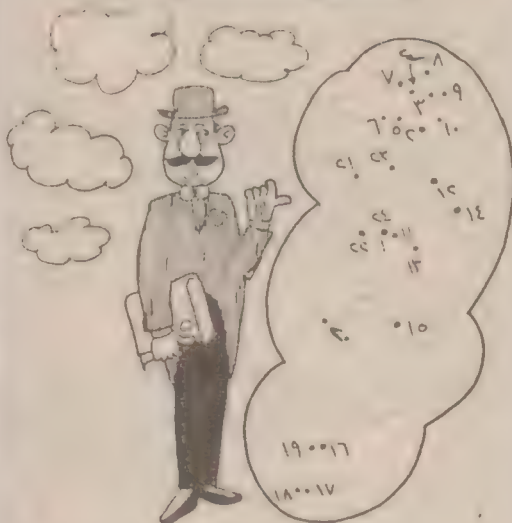 ٤ ٨
٧ ٩
٣
٦ ٥ ٢ ١٠
٢١ ٢٣
١٢
١٤
٢٤
٢٢ ١ ١١
١٣
٢٠ ١٥
١٩ ١٦
١٨ ١٧